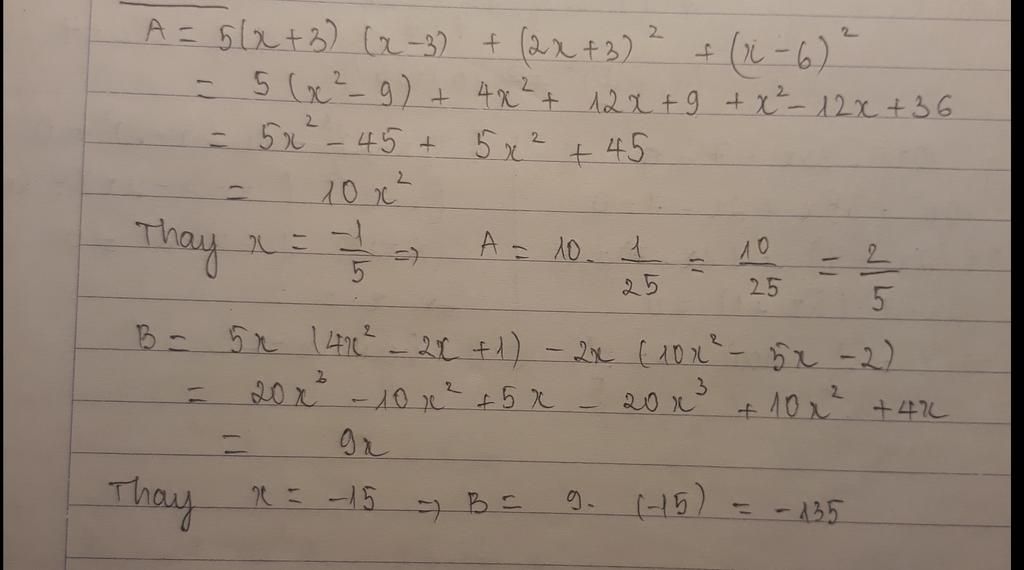 A = 5(x+3) (x-3) + (2x+3)² + (x-6)²
= 5 (x² - 9) + 4x² + 12x + 9 + x² - 12x + 36
= 5x² - 45 + 5x² + 45
= 10x²
Thay x = -1/5 => A = 10. 1/25 = 10/25 = 2/5
B = 5x (4x² - 2x + 1) - 2x (10x² - 5x - 2)
= 20x³ - 10x² + 5x - 20x³ + 10x² + 4x
= 9x
Thay x = -15 => B = 9. (-15) = -135